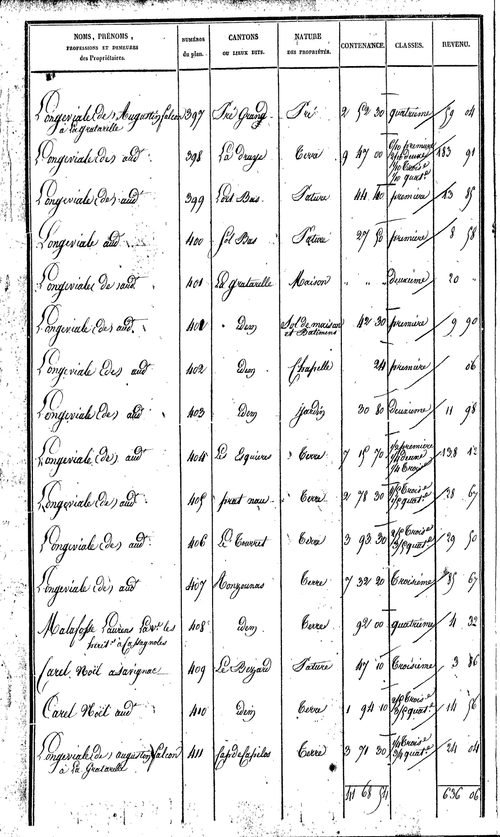 NOMS, PRÉNOMS, PROFESSIONS ET DEMEURES des Propriétaires. NUMÉROS du plan. CANTONS OU LIEUX DITS. NATURE DES PROPRIÉTÉS. CONTENANCE. CLASSES. REVENU.
Longeviale (de) Augustin falcon 397 Pré Grand Pré 2 52 30 quatrieme 59 04
a la gratarelle
Longeviale (de) aud 398 La Draye Terre 9 47 00 183 91
Longeviale (de) aud 399 Lort Bas Pature 44 40 premiere 13 85
Longeviale aud 400 Sol Bas Pature 27 50 premiere 8 58
Longeviale de aud 401 La gratarelle Maison " " " deuxieme 20 "
Longeviale (de) aud 401 idem Sol de maison et Batimens 42 30 premiere 9 90
Longeviale (de) aud 402 idem Chapelle 24 premiere 06
Longeviale (de) aud 403 idem jardin 30 80 deuxieme 11 98
Longeviale (de) aud 404 Terre 7 15 70 138 12
Longeviale (de) aud 405 prat nau Terre 2 78 30 38 67
Longeviale (de) aud 406 Le Courret Terre 3 93 30 29 50
Longeviale (de) aud 407 Terre 7 32 20 Troisieme 85 67
Malafosse Laurens 408 idem Terre 92 00 quatrieme 4 32
Carel Noël a Savignac 409 Le Bezard Pature 47 10 Troisieme 3 86
Carel Noël aud 410 idem Terre 1 94 10 14 56
Longeviale (de) augustin falcon 411 Terre 3 71 30 24 04
à La Gratarelle
41 68 54 636 06